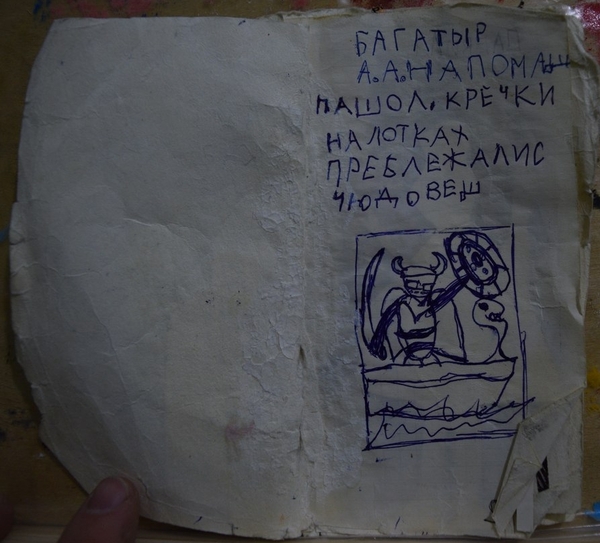 БАГАТЫР
А.А.НАПОМАЩ
ПАШОЛ. КРЕЧКИ
НАЛОТКАХ
ПРЕБЛЕЖАЛИС
ЧЮДОВЕЩ